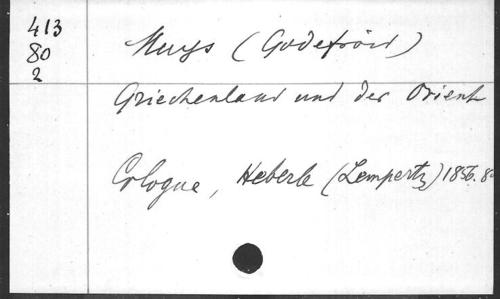 413
80
2
Muys (Godefroid)
Griechenland und der Orient
Cologne, Heberle (Lempertz) 1856. 8º